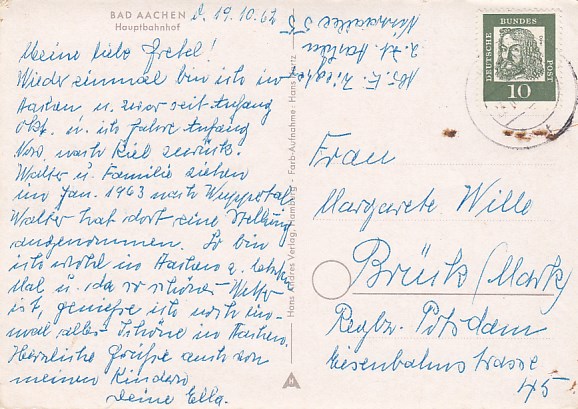 BAD AACHEN
Hauptbahnhof
d. 19.10.62
Meine liebe Gretel!
Wieder einmal bin ich in
Aachen u. zwar seit Anfang
Okt. u. ich fahre Anfang
Nov. nach Kiel zurück.
Walter u. Familie ziehen
im Jan. 1963 nach Wuppertal
Walter hat dort eine Stellung
angenommen. So bin
ich wohl in Aachen z. letzten
Mal u. da so schönes Wetter
ist, genieße ich noch ein-
mal alles Schöne in Aachen.
Herzliche Grüße auch von
meinen Kindern
Deine Ella.
Abs. E.
z. Zt. Aachen
55
Hans Andres Verlag, Hamburg - Farb-Aufnahme: Hans Hartz
DEUTSCHE BUNDES POST
10
Frau
Margarete Wille
Brück (Mark)
Regbz. Potsdam
Eisenbahnstrasse
45